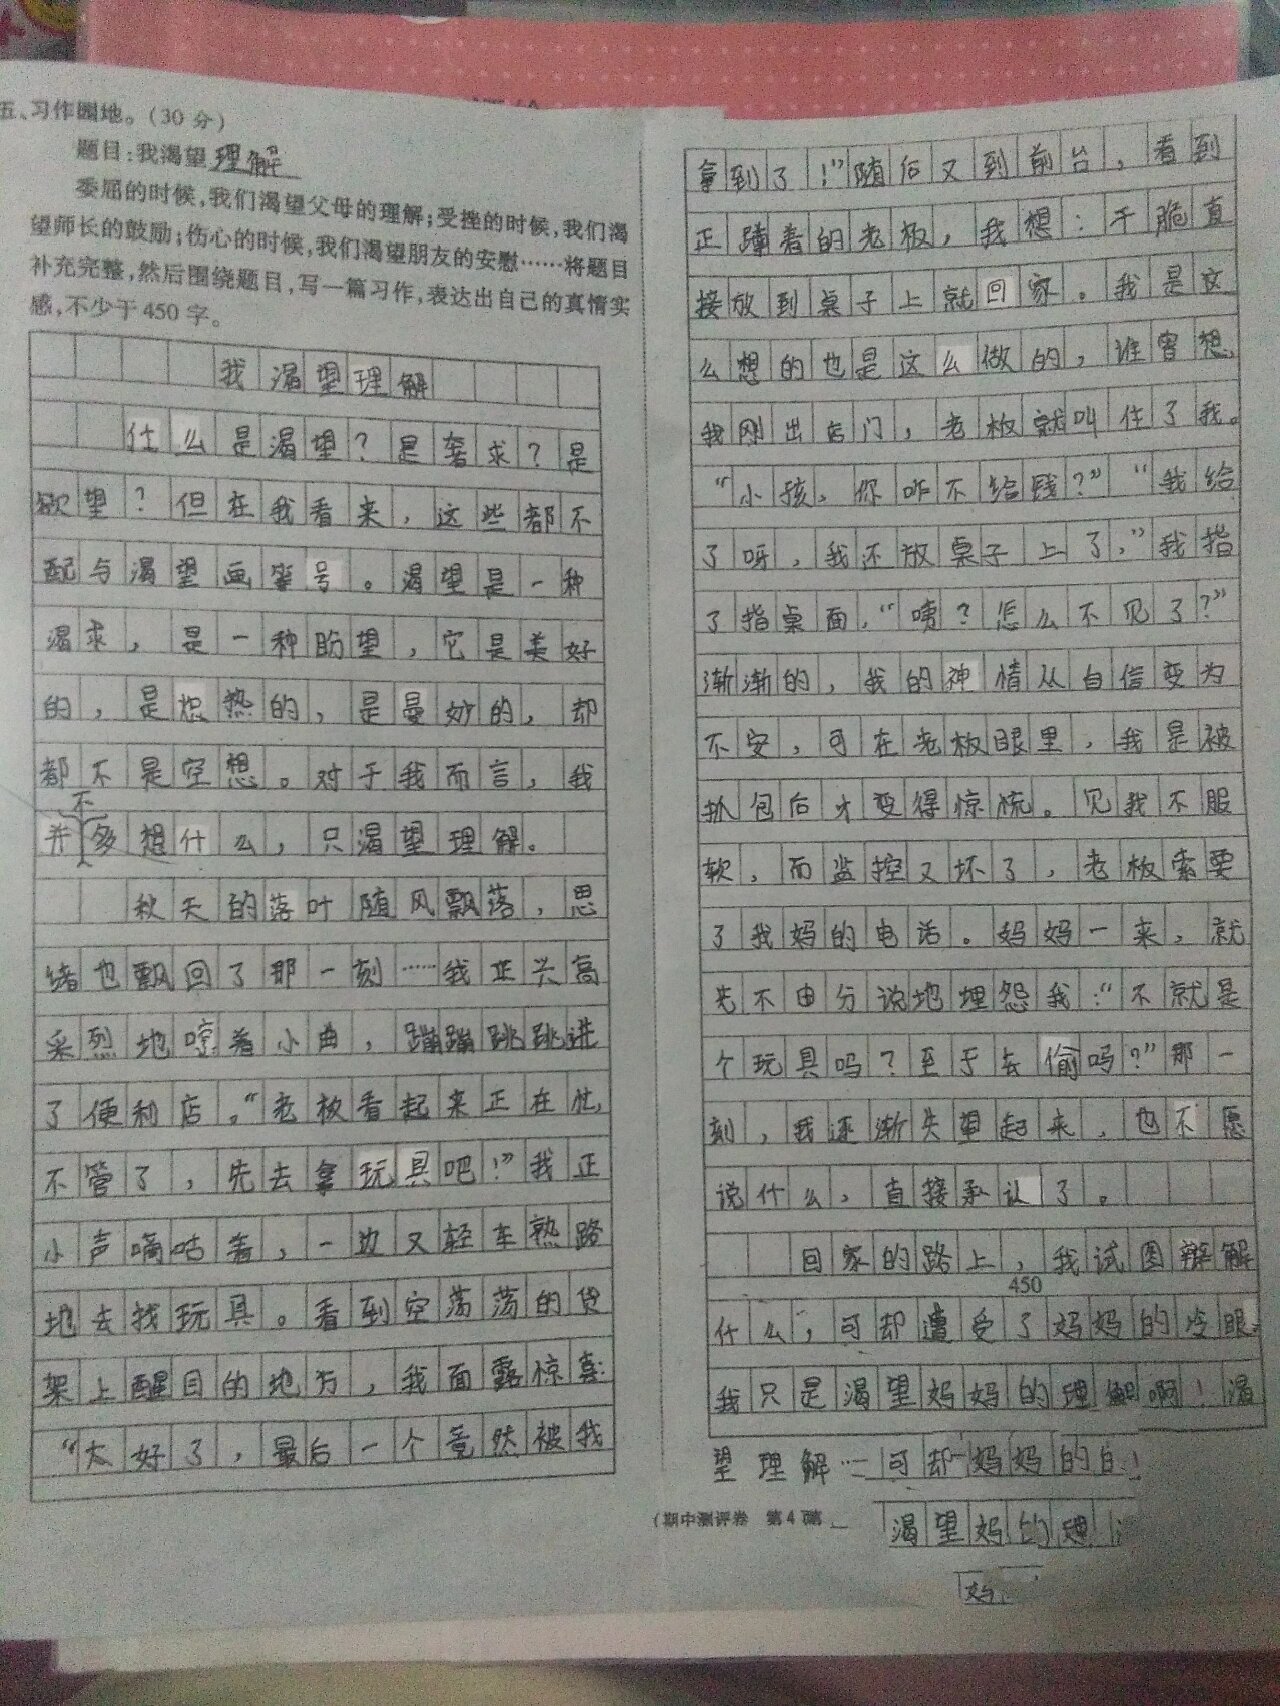 五、习作园地。(30分)
题目:我渴望理解
委屈的时候,我们渴望父母的理解;受挫的时候,我们渴
望师长的鼓励;伤心的时候,我们渴望朋友的安慰……将题目
补充完整,然后围绕题目,写一篇习作,表达出自己的真情实
感,不少于450字。
我渴望理解
什么是渴望?是奢求?是
欲望?但在我看来,这些都不
配与渴望画等号。渴望是一种
渴求,是一种盼望,它是美好
的,是炽热的,是曼妙的,却
都不是空想。对于我而言,我
并不多想什么,只渴望理解。
秋天的落叶随风飘落,思
绪也飘回了那一刻……我正兴高
采烈地哼着小曲,蹦蹦跳跳进
了便利店。“老板看起来正在忙,
不管了,先去拿玩具吧!”我正
小声嘀咕着,一边又轻车熟路
地去找玩具。看到空荡荡的货
架上醒目的地方,我面露惊喜:
“太好了,最后一个竟然被我
拿到了!”随后又到前台,看到
正蹲着的老板,我想:干脆直
接放到桌子上就回家。我是这
么想的也是这么做的,谁曾想,
我刚出店门,老板就叫住了我。
“小孩,你咋不给钱?”“我给
了呀,我还放桌子上了,”我指
了指桌面,“咦?怎么不见了?”
渐渐的,我的神情从自信变为
不安,可在老板眼里,我是被
抓包后才变得惊慌。见我不服
软,而监控又坏了,老板索要
了我妈的电话。妈妈一来,就
先不由分说地埋怨我:“不就是
个玩具吗?至于去偷吗?”那一
刻,我逐渐失望起来,也不愿
说什么,直接承认了。
回家的路上,我试图辩解
450
什么,可却遭受了妈妈的冷眼。
我只是渴望妈妈的理解啊!渴
望理解…可却妈妈的
渴望妈的理
(期中测评卷 第4页)